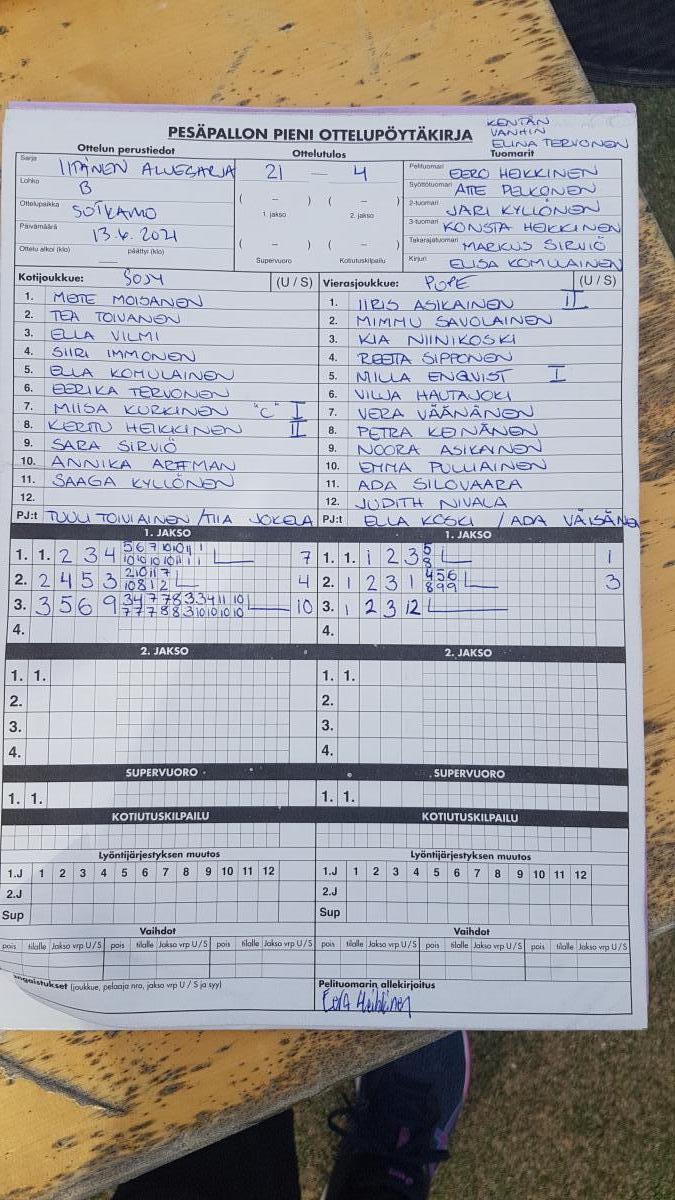 PESÄPALLON PIENI OTTELUPÖYTÄKIRJA
KENTÄN
VANHIN
ELINA TERVONEN
Ottelun perustiedot
Ottelutulos
Tuomarit
Sarja ITÄINEN ALUESARJA
Lohko B
Ottelupaikka SOTKAMO
Päivämäärä 13.6.2021
Ottelu alkoi (klo) päättyi (klo)
21 — 4
( – ) ( – )
1. jakso 2. jakso
( – ) ( – )
Supervuoro Kotiutuskilpailu
Pelituomari EERO HEIKKINEN
Syöttötuomari ATTE PELKONEN
2-tuomari JARI KYLLÖNEN
3-tuomari KONSTA HEIKKINEN
Takarajatuomari MARKUS SIRVIÖ
Kirjuri ELISA KOMULAINEN
Kotijoukkue: SOJY (U / S)
1. METE MOISANEN
2. TEA TOIVANEN
3. ELLA VILMI
4. SIIRI IMMONEN
5. ELLA KOMULAINEN
6. EERIKA TERVONEN
7. MIISA KURKINEN "C" I
8. KERTTU HEIKKINEN II
9. SARA SIRVIÖ
10. ANNIKA ARFFMAN
11. SAAGA KYLLÖNEN
12.
PJ:t TUULI TOIVIAINEN / TIIA JOKELA
Vierasjoukkue: POPE (U / S)
1. IIRIS ASIKAINEN II
2. MIMMU SAVOLAINEN
3. KIA NIINIKOSKI
4. REETTA SIPPONEN
5. MILLA ENQVIST I
6. VILJA HAUTAJOKI
7. VERA VÄÄNÄNEN
8. PETRA KEINÄNEN
9. NOORA ASIKAINEN
10. EMMA PULLIAINEN
11. ADA SILOVAARA
12. JUDITH NIVALA
PJ:t ELLA KOSKI / ADA VÄISÄNEN
1. JAKSO
1. 1. 2 3 4 7
2. 2 4 5 3 4
3. 3 5 6 9 10
4.
1. JAKSO
1. 1. 1 2 3 5 8 1
2. 1 2 3 1 456 899 3
3. 1 2 3 12
4.
2. JAKSO
1. 1.
2.
3.
4.
2. JAKSO
1. 1.
2.
3.
4.
SUPERVUORO
1. 1.
SUPERVUORO
1. 1.
KOTIUTUSKILPAILU
KOTIUTUSKILPAILU
Lyöntijärjestyksen muutos
1.J 1 2 3 4 5 6 7 8 9 10 11 12
2.J
Sup
Lyöntijärjestyksen muutos
1.J 1 2 3 4 5 6 7 8 9 10 11 12
2.J
Sup
Vaihdot
pois tilalle Jakso vrp U / S pois tilalle Jakso vrp U / S pois tilalle Jakso vrp U / S
Vaihdot
pois tilalle Jakso vrp U / S pois tilalle Jakso vrp U / S pois tilalle Jakso vrp U / S
ngaistukset (joukkue, pelaaja nro, jakso vrp U / S ja syy)
Pelituomarin allekirjoitus
Eero Heikkinen